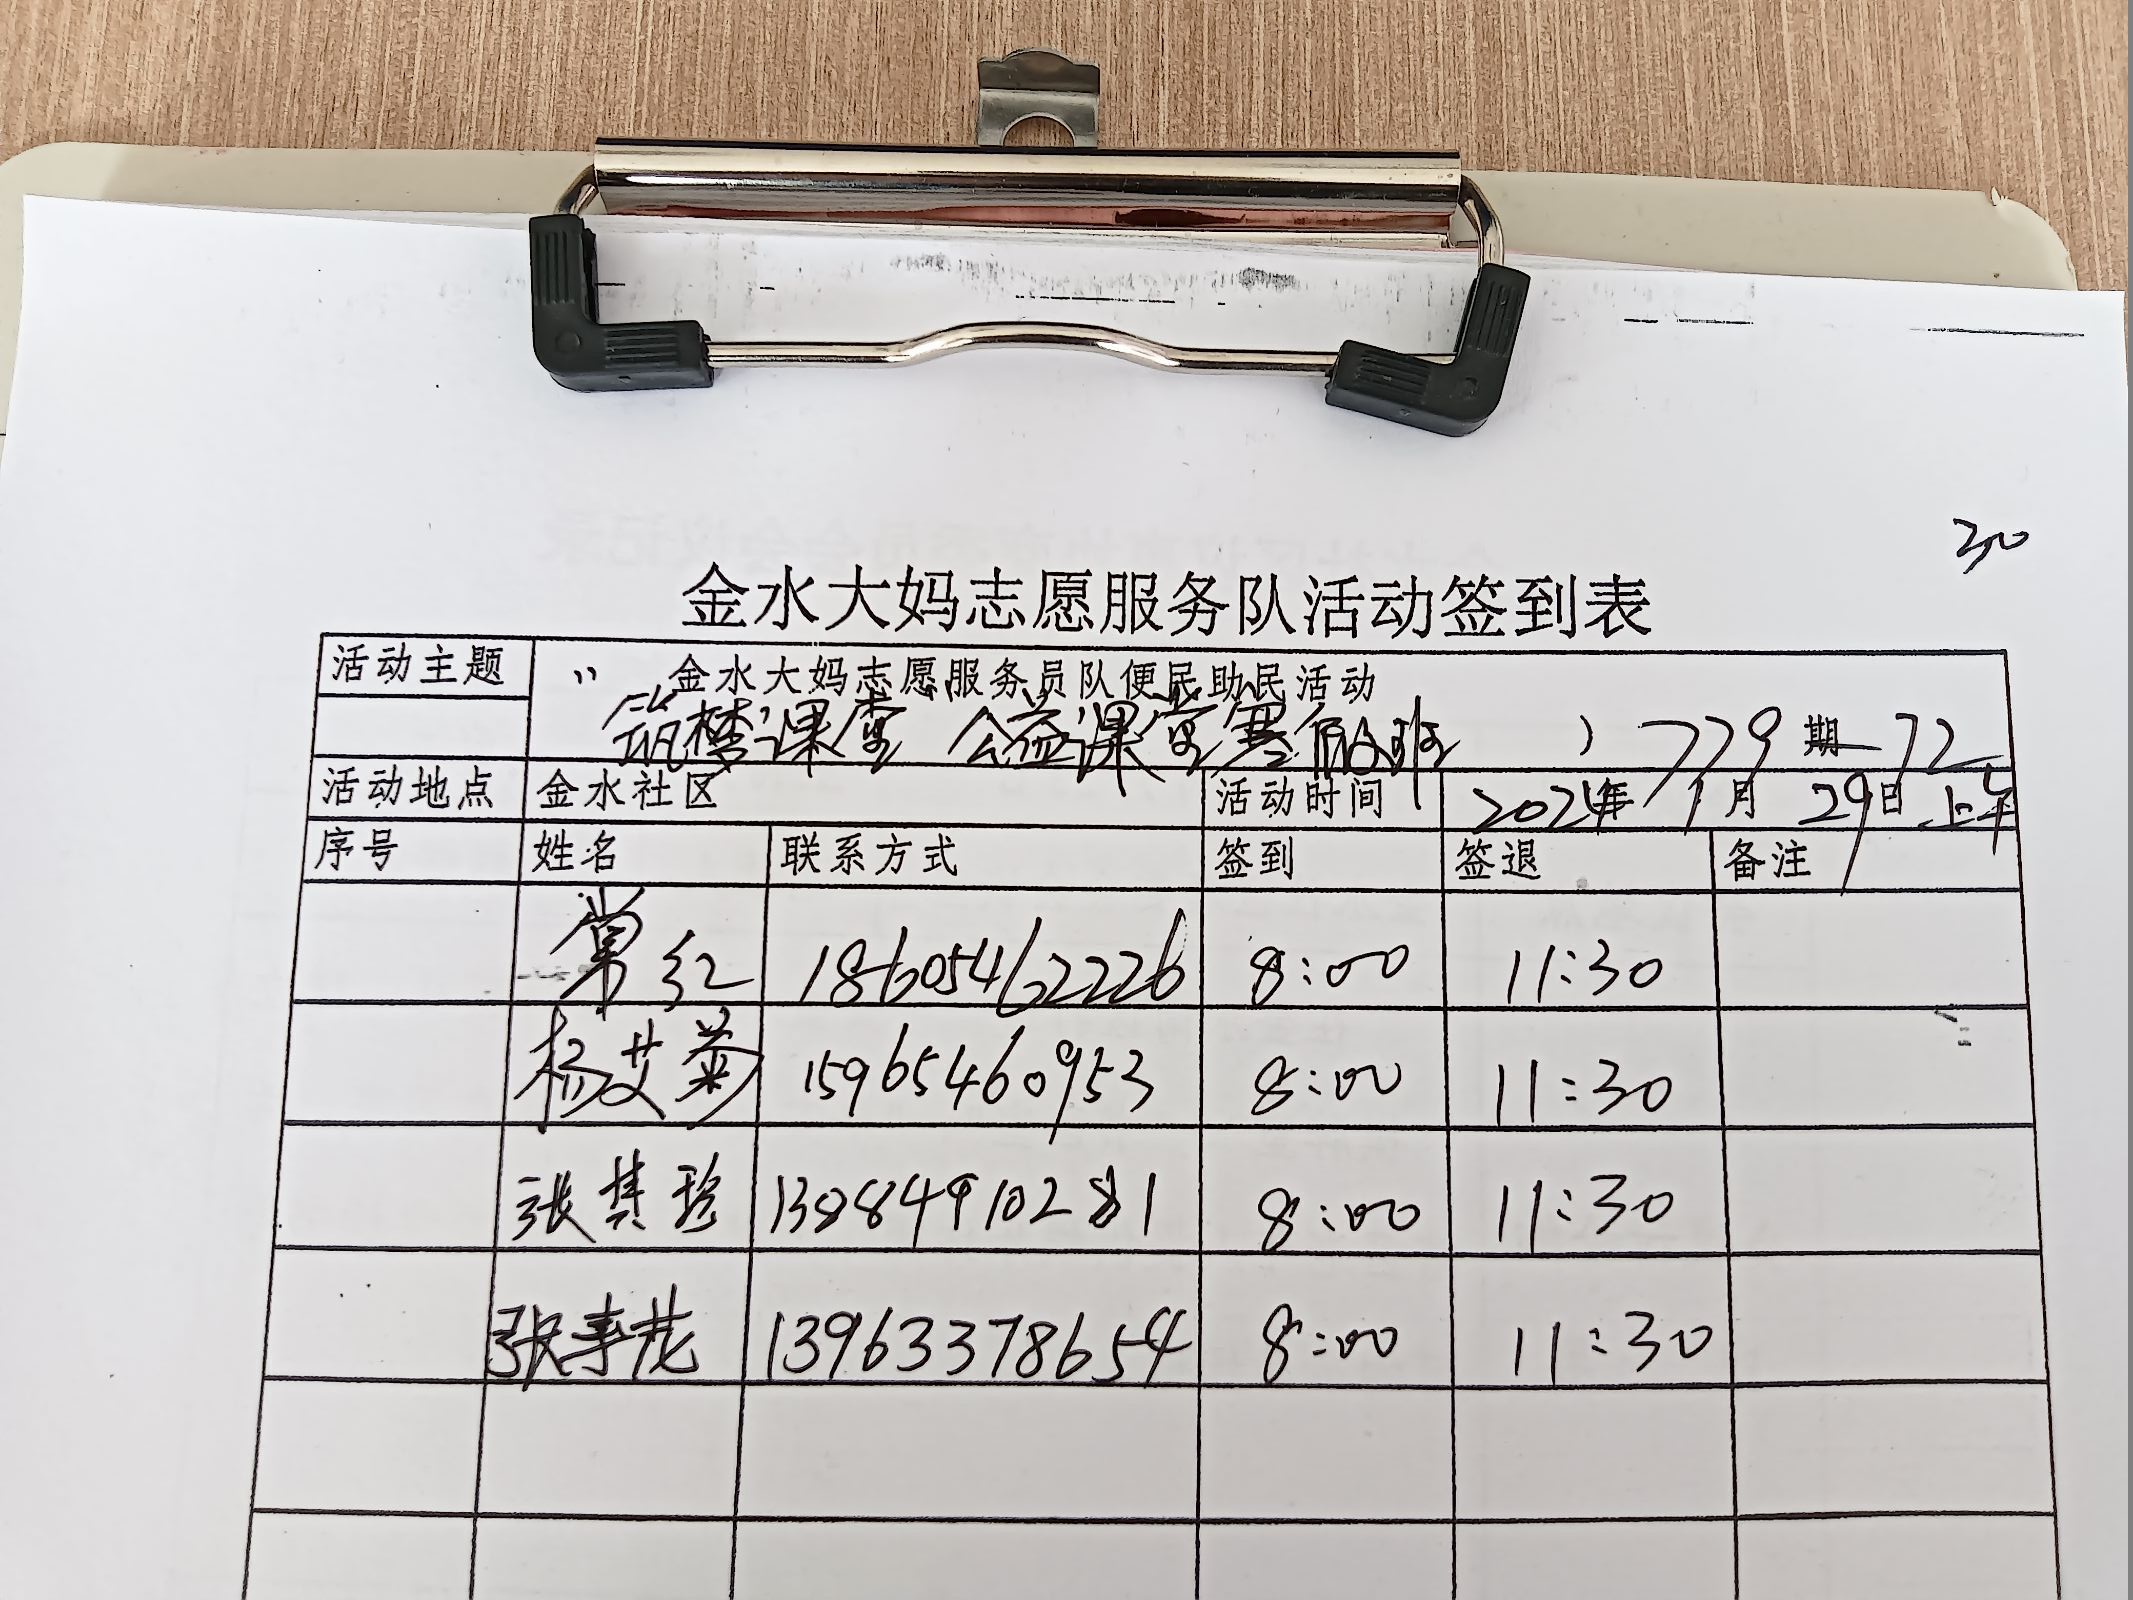 30
金水大妈志愿服务队活动签到表
活动主题 " 金水大妈志愿服务员队便民助民活动
筑梦课堂 公益课堂寒假班 ) 779期-72
活动地点 金水社区 活动时间 2024年1月29日上午
序号 姓名 联系方式 签到 签退 备注
常红 18605462226 8:00 11:30
杨艾菊 15965460953 8:00 11:30
张其珍 13884910281 8:00 11:30
张 花 13963378654 8:00 11:30